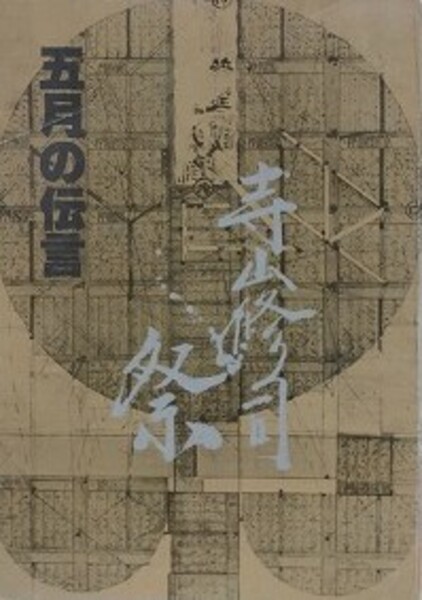 五月の伝言
寺山修司
祭